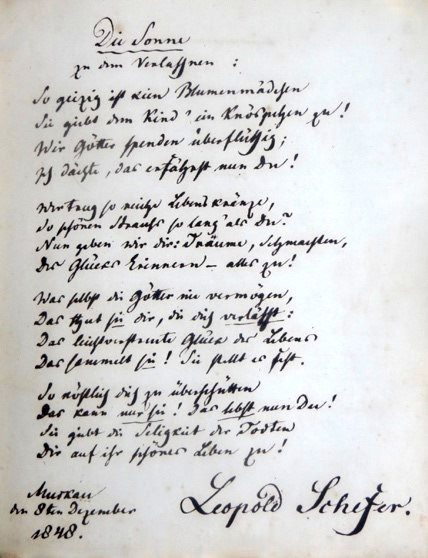 Die Sonne
zu dem Verlaßnen :
So geizig ist kein Blumenmädchen
Sie giebt dem Kind' ein Knöspchen zu!
Wir Götter spenden überflüssig;
Ich dächte, das erfährst nun Du!
Wer trug so reiche Lebenskränze,
So schönen Strauß so lang' als Du?
Nun geben wir dir: Träume, Schmachten,
Des Glücks Erinnern – alles zu!
Was selbst die Götter nie vermögen,
Das thut sie dir, die dich verläßt:
Das leichtverstreute Glück des Lebens
Das sammelt sie! Sie stellt es fest.
So köstlich dich zu überschütten
Das kann nur sie! Das lebst nun Du!
Sie giebt die Seligkeit der Todten
Dir auf ihr schönes Leben zu!
Muskau
den 8ten Dezember
1848.
Leopold Schefer.